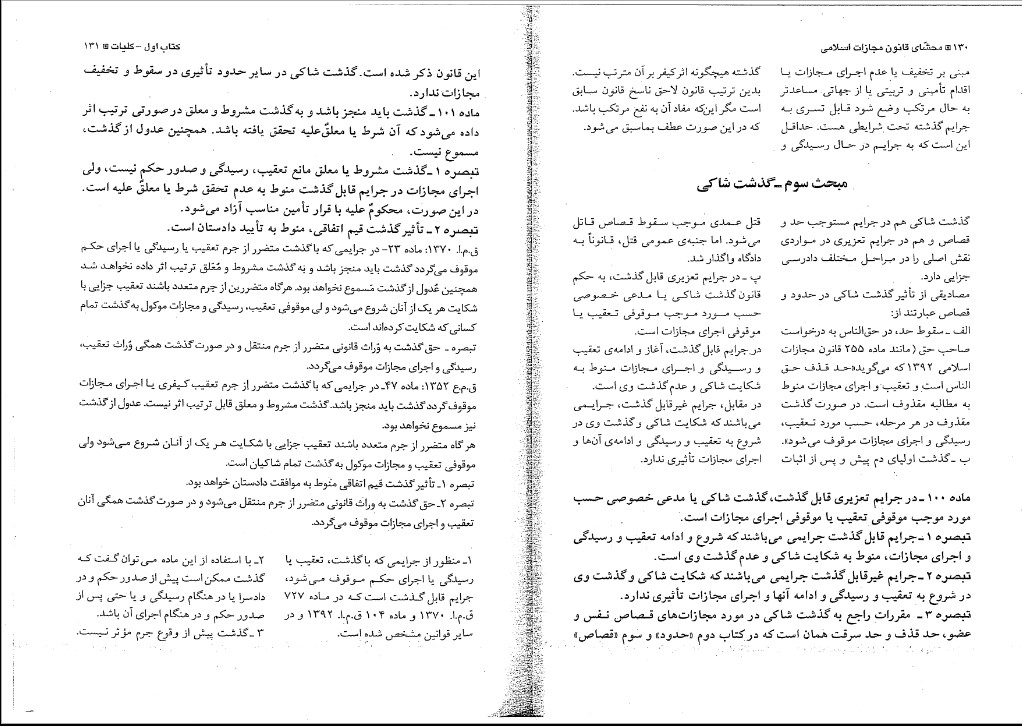 ۱۳۰ ◘ محشّای قانون مجازات اسلامی
مبنی بر تخفیف یا عدم اجرای مجازات یا
اقدام تأمینی و تربیتی یا از جهاتی مساعدتر
به حال مرتکب وضع شود قابل تسری به
جرایم گذشته تحت شرایطی هست. حداقل
این است که به جرایم در حال رسیدگی و
گذشته هیچگونه اثر کیفر بر آن مترتب نیست.
بدین ترتیب قانون لاحق ناسخ قانون سابق
است مگر این‌که مفاد آن به نفع مرتکب باشد.
که در این صورت عطف بماسبق می‌شود.
مبحث سوم ـ گذشت شاکی
گذشت شاکی هم در جرایم مستوجب حد و
قصاص و هم در جرایم تعزیری در مواردی
نقش اصلی را در مراحل مختلف دادرسی
جزایی دارد.
مصادیقی از تأثیر گذشت شاکی در حدود و
قصاص عبارتند از:
الف ـ سقوط حد، در حق‌الناس به درخواست
صاحب حق (مانند ماده ۲۵۵ قانون مجازات
اسلامی ۱۳۹۲ که می‌گوید «حد قذف حق
الناس است و تعقیب و اجرای مجازات منوط
به مطالبه مقذوف است. در صورت گذشت
مقذوف در هر مرحله، حسب مورد تعقیب،
رسیدگی و اجرای مجازات موقوف می‌شود».
ب ـ گذشت اولیای دم پیش و پس از اثبات
قتل عمدی موجب سقوط قصاص قاتل
می‌شود. اما جنبه‌ی عمومی قتل، قانوناً به
دادگاه واگذار شد.
پ ـ در جرایم تعزیری قابل گذشت، به حکم
قانون گذشت شاکی یا مدعی خصوصی
حسب مورد موجب موقوفی تعقیب یا
موقوفی اجرای مجازات است.
در جرایم قابل گذشت، آغاز و ادامه‌ی تعقیب
و رسیدگی و اجرای مجازات منوط به
شکایت شاکی و عدم گذشت وی است.
در مقابل، جرایم غیرقابل گذشت، جرایمی
می‌باشند که شکایت شاکی و گذشت وی در
شروع به تعقیب و رسیدگی و ادامه‌ی آن‌ها و
اجرای مجازات تأثیری ندارد.
ماده ۱۰۰ ـ در جرایم تعزیری قابل گذشت، گذشت شاکی یا مدعی خصوصی حسب
مورد موجب موقوفی تعقیب یا موقوفی اجرای مجازات است.
تبصره ۱ ـ جرایم قابل گذشت جرایمی می‌باشند که شروع و ادامه تعقیب و رسیدگی
و اجرای مجازات، منوط به شکایت شاکی و عدم گذشت وی است.
تبصره ۲ ـ جرایم غیرقابل گذشت جرایمی می‌باشند که شکایت شاکی و گذشت وی
در شروع به تعقیب و رسیدگی و ادامه آنها و اجرای مجازات تأثیری ندارد.
تبصره ۳ ـ مقررات راجع به گذشت شاکی در مورد مجازات‌های قصاص نفس و
عضو، حد قذف و حد سرقت همان است که در کتاب دوم «حدود» و سوم «قصاص»
کتاب اول – کلیات ◘ ۱۳۱
این قانون ذکر شده است. گذشت شاکی در سایر حدود تأثیری در سقوط و تخفیف
مجازات ندارد.
ماده ۱۰۱ ـ گذشت باید منجز باشد و به گذشت مشروط و معلق در صورتی ترتیب اثر
داده می‌شود که آن شرط یا معلقٌ‌علیه تحقق یافته باشد. همچنین عدول از گذشت،
مسموع نیست.
تبصره ۱ ـ گذشت مشروط یا معلق مانع تعقیب، رسیدگی و صدور حکم نیست، ولی
اجرای مجازات در جرایم قابل گذشت منوط به عدم تحقق شرط یا معلقٌ علیه است.
در این صورت، محکومٌ علیه با قرار تأمین مناسب آزاد می‌شود.
تبصره ۲ ـ تأثیر گذشت قیم اتفاقی، منوط به تأیید دادستان است.
ق.م.ا. ۱۳۷۰: ماده ۲۳- در جرایمی که با گذشت متضرر از جرم تعقیب یا رسیدگی یا اجرای حکم
موقوف می‌گردد گذشت باید منجز باشد و به گذشت مشروط و مُعَلق ترتیب اثر داده نخواهد شد
همچنین عُدول از گذشت مَسموع نخواهد بود. هرگاه متضررین از جرم متعدد باشند تعقیب جزایی با
شکایت هر یک از آنان شروع می‌شود ولی موقوفی تعقیب، رسیدگی و مجازات موکول به گذشت تمام
کسانی که شکایت کرده‌اند است.
تبصره ـ حق گذشت به وُراث قانونی متضرر از جرم منتقل و در صورت گذشت همگی وُراث تعقیب،
رسیدگی و اجرای مجازات موقوف می‌گردد.
ق.م.ع ۱۳۵۲: ماده ۴۷ـ در جرایمی که با گذشت متضرر از جرم تعقیب کیفری یا اجرای مجازات
موقوف گردد گذشت باید منجز باشد. گذشت مشروط و معلق قابل ترتیب اثر نیست. عدول از گذشت
نیز مسموع نخواهد بود.
هر گاه متضرر از جرم متعدد باشند تعقیب جزایی با شکایت هر یک از آنان شروع می‌شود ولی
موقوفی تعقیب و مجازات موکول به گذشت تمام شاکیان است.
تبصره ۱ـ تأثیر گذشت قیم اتفاقی منوط به موافقت دادستان خواهد بود.
تبصره ۲ـ حق گذشت به وراث قانونی متضرر از جرم منتقل می‌شود و در صورت گذشت همگی آنان
تعقیب و اجرای مجازات موقوف می‌گردد.
۱ـ منظور از جرایمی که با گذشت، تعقیب یا
رسیدگی یا اجرای حکم موقوف می‌شود،
جرایم قابل گذشت است که در ماده ۷۲۷
ق.م.ا. ۱۳۷۰ و ماده ۱۰۴ ق.م.ا. ۱۳۹۲ و در
سایر قوانین مشخص شده است.
۲ـ با استفاده از این ماده می‌توان گفت که
گذشت ممکن است پیش از صدور حکم و در
دادسرا یا در هنگام رسیدگی و یا حتی پس از
صدور حکم و در هنگام اجرای آن باشد.
۳ ـ گذشت پیش از وقوع جرم مؤثر نیست.